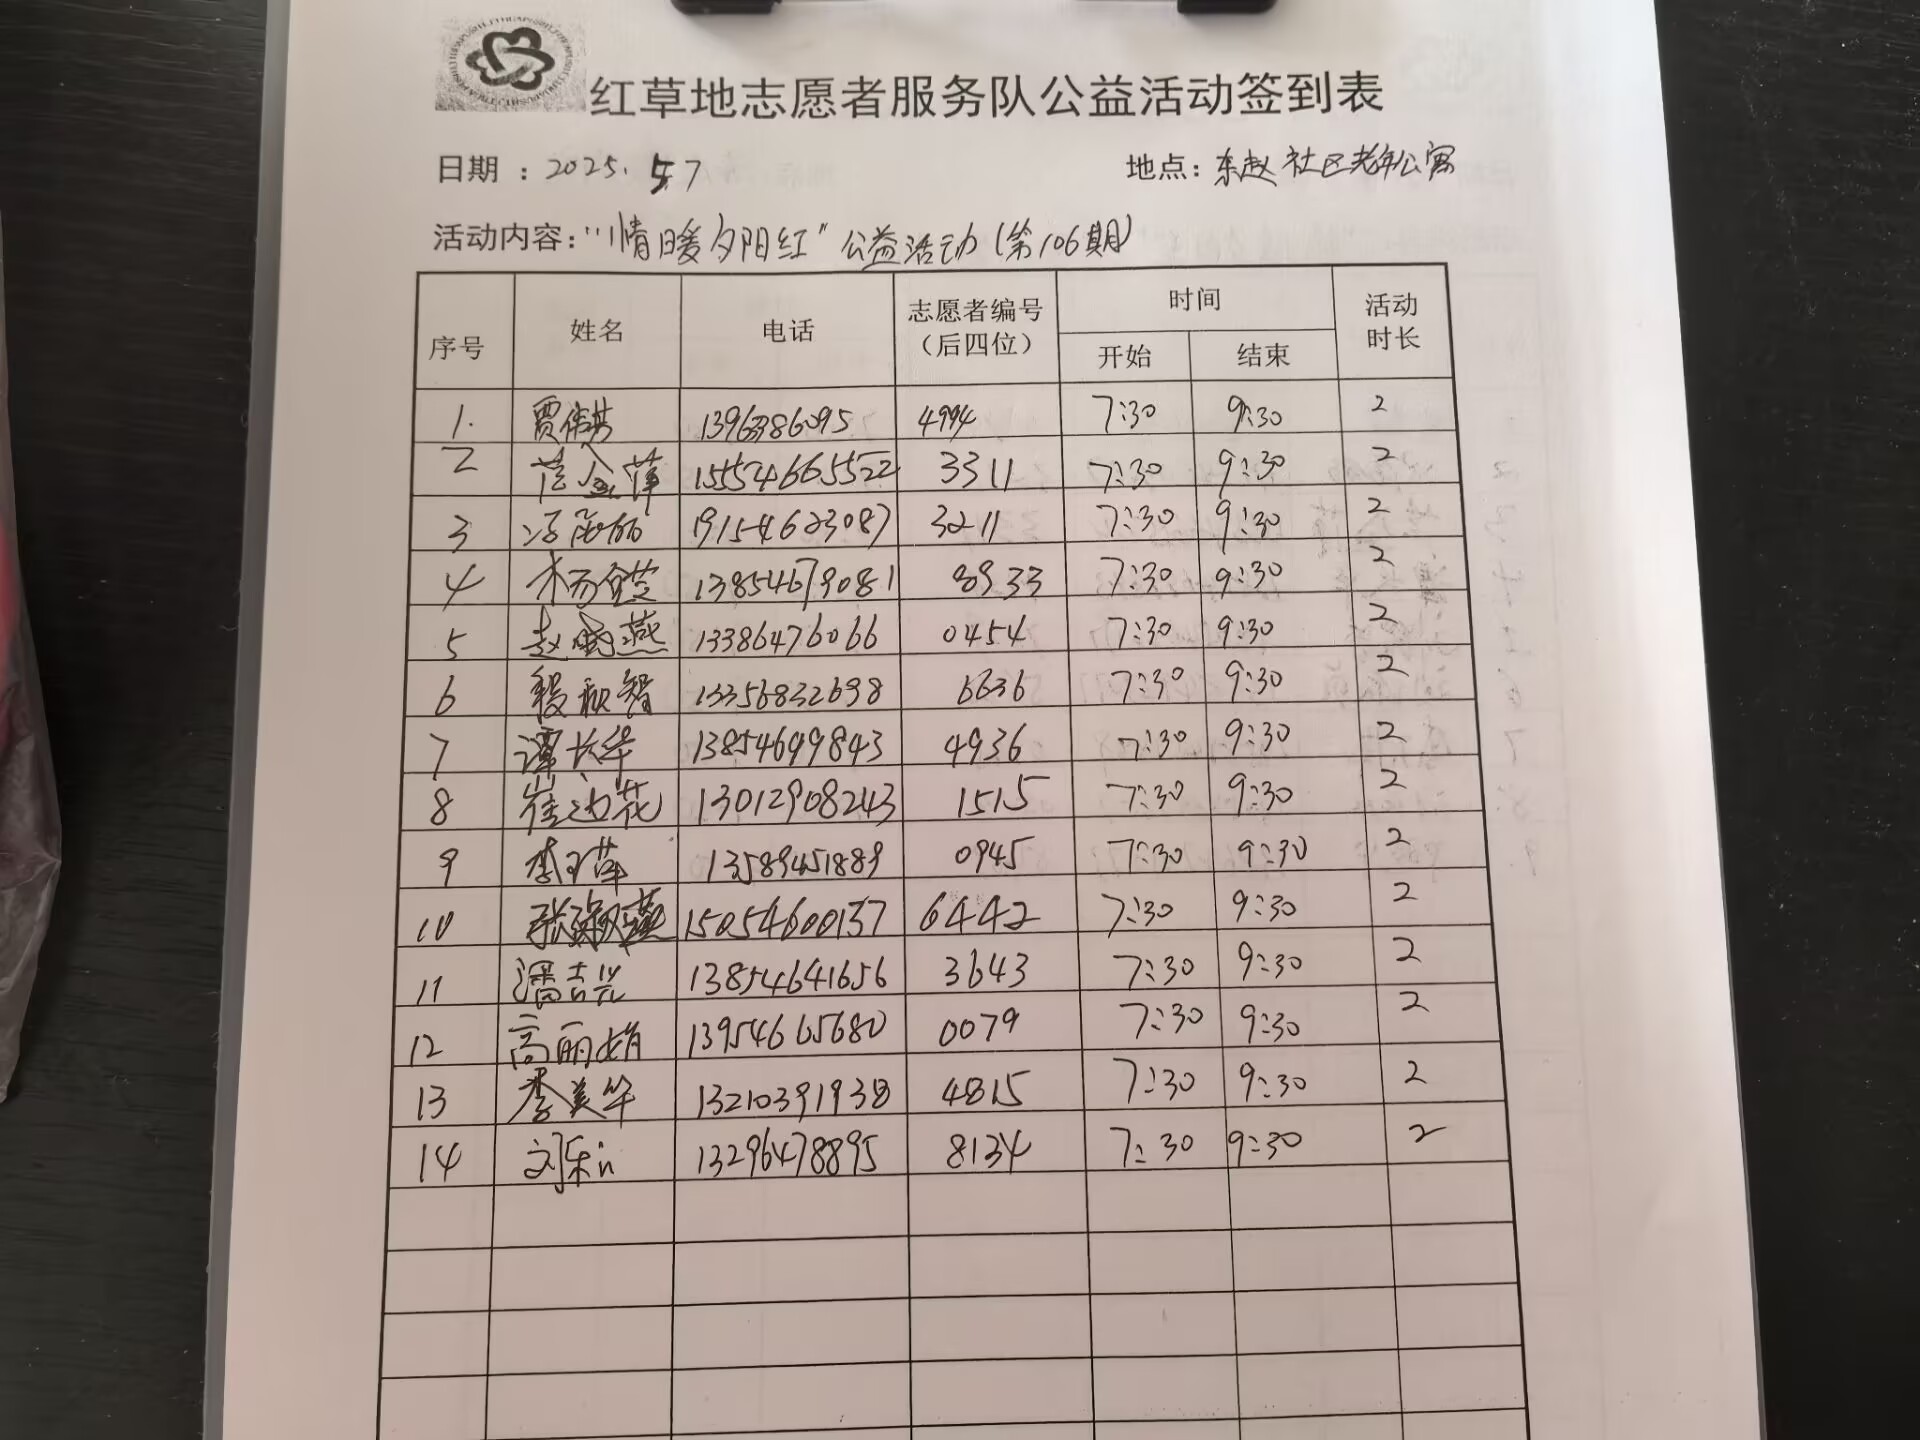 红草地志愿者服务队公益活动签到表
日期：2025.5.7 地点：东赵社区老年公寓
活动内容："情暖夕阳红"公益活动（第106期）
序号 姓名 电话 志愿者编号（后四位） 时间 开始 结束 活动时长
1. 4994 7:30 9:30 2
2 15554665522 3311 7:30 9:30 2
3 19154623087 3211 7:30 9:30 2
4 13854679081 8933 7:30 9:30 2
5 赵晓燕 13386476066 0454 7:30 9:30 2
6 13356832698 6636 7:30 9:30 2
7 谭长华 13854699843 4936 7:30 9:30 2
8 崔迎花 13012908243 1515 7:30 9:30 2
9 13589451889 0945 7:30 9:30 2
10 15054600137 6442 7:30 9:30 2
11 潘吉兴 13854641656 3643 7:30 9:30 2
12 高丽娟 13954665680 0079 7:30 9:30 2
13 李美华 13210391938 4815 7:30 9:30 2
14 13296478895 8134 7:30 9:30 2